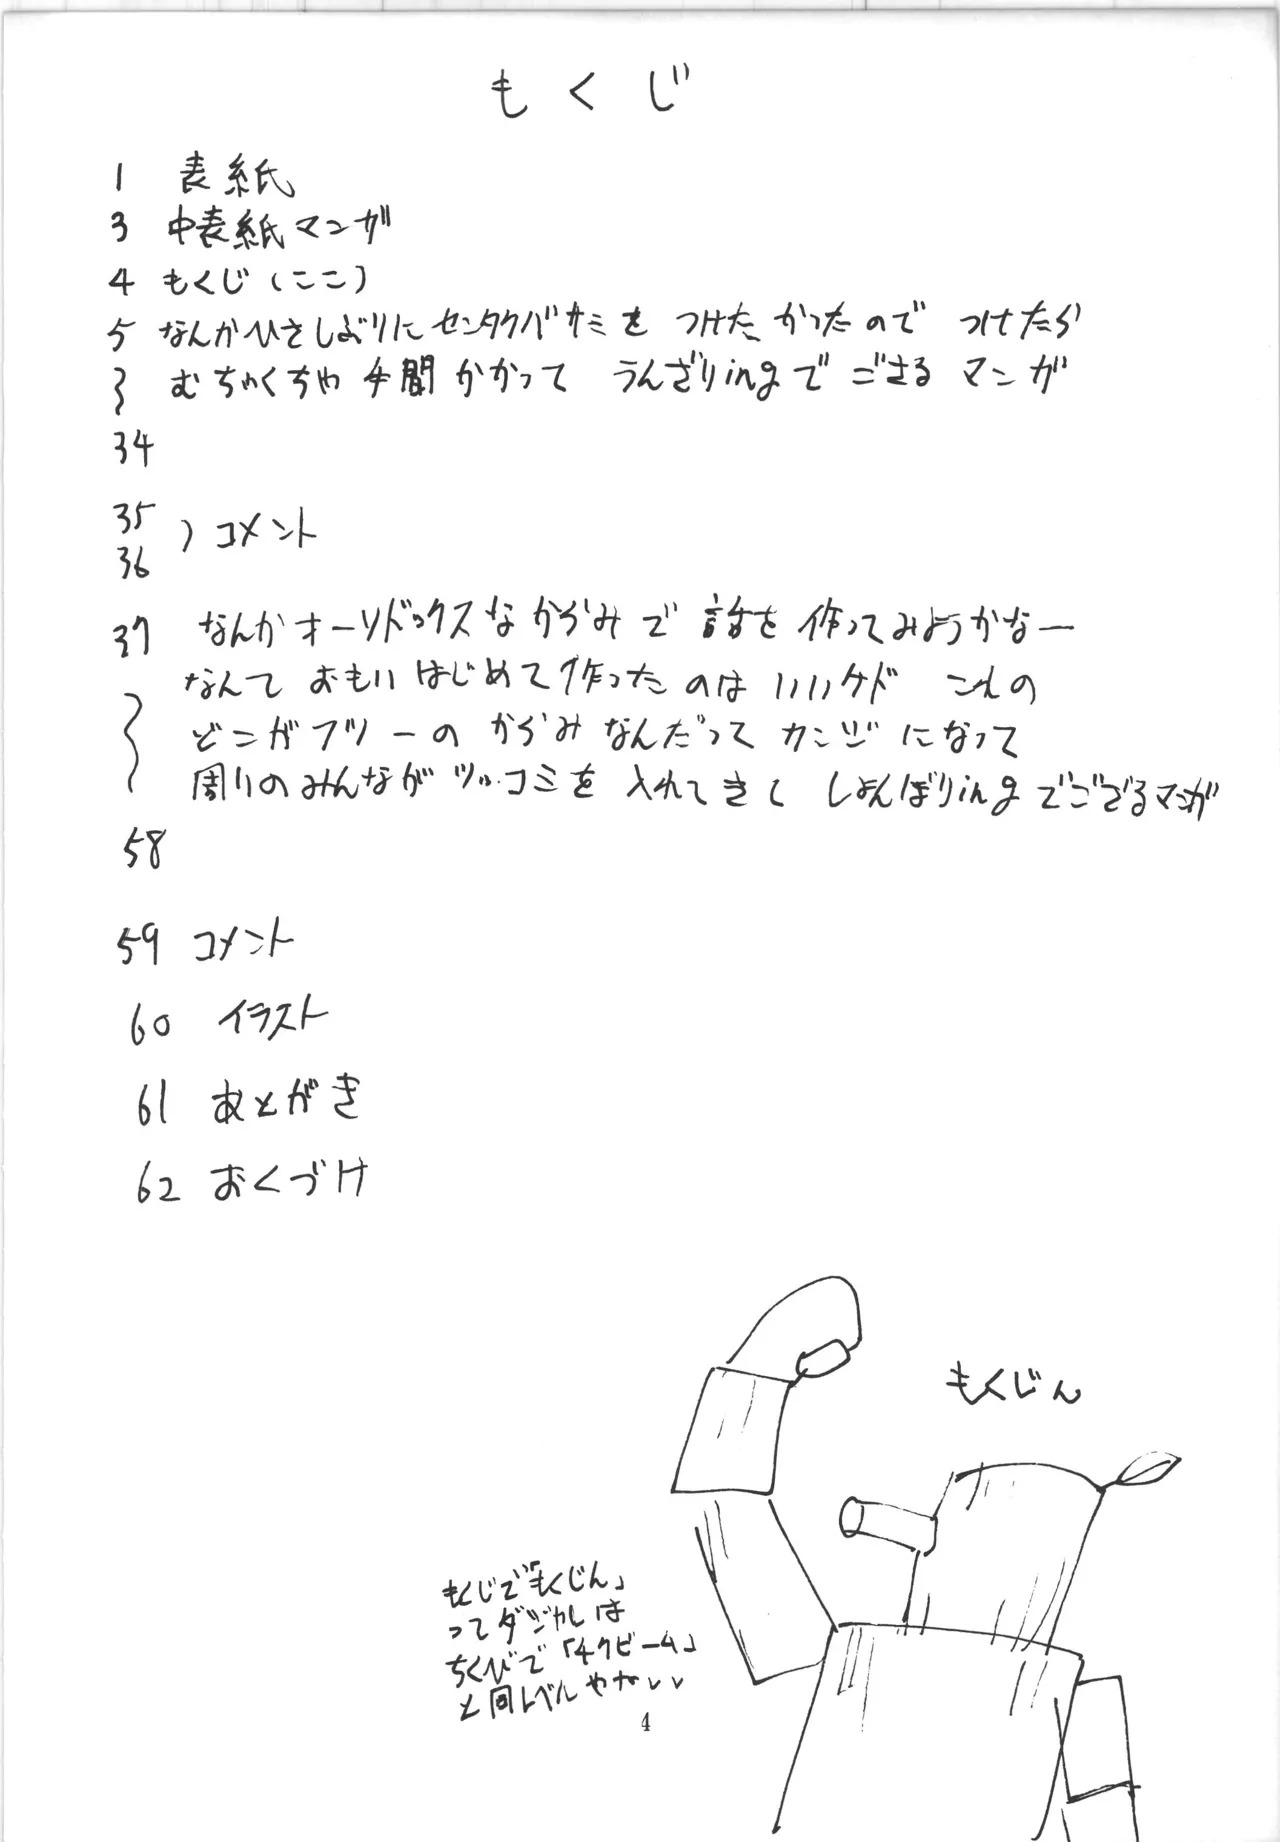 もくじ
1 表紙
3 中表紙マンガ
4 もくじ(ここ)
5 なんかひさしぶりにセンタクバサミをつけたかったのでつけたら
〜 むちゃくちゃ手間かかってうんざりingでござるマンガ
34
35
) コメント
36
37 なんかオーソドックスなからみで話を作ってみようかなー
〜 なんておもいはじめて作ったのはいいケド これの
どこがフツーのからみなんだってカンジになって
周りのみんながツッコミを入れてきてしょんぼりingでござるマンガ
58
59 コメント
60 イラスト
61 あとがき
62 おくづけ
もくじん
もくじで「もくじん」
ってダジャレは
ちくびで「チクビーム」
と同レベルやな、、
4